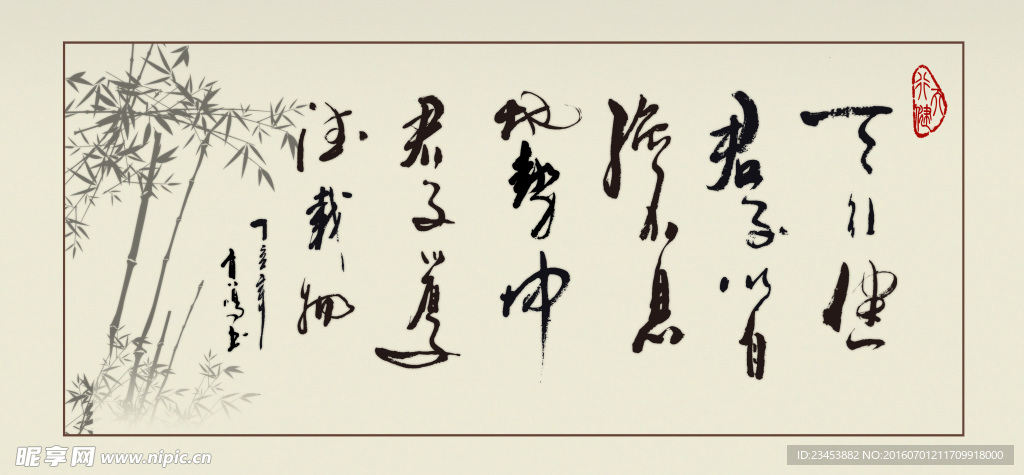 天行健
天行健
君子以自
强不息
地勢坤
君子以厚
德載物
昵享网 www.nipic.cn
ID:23453882 NO:20160701211709918000